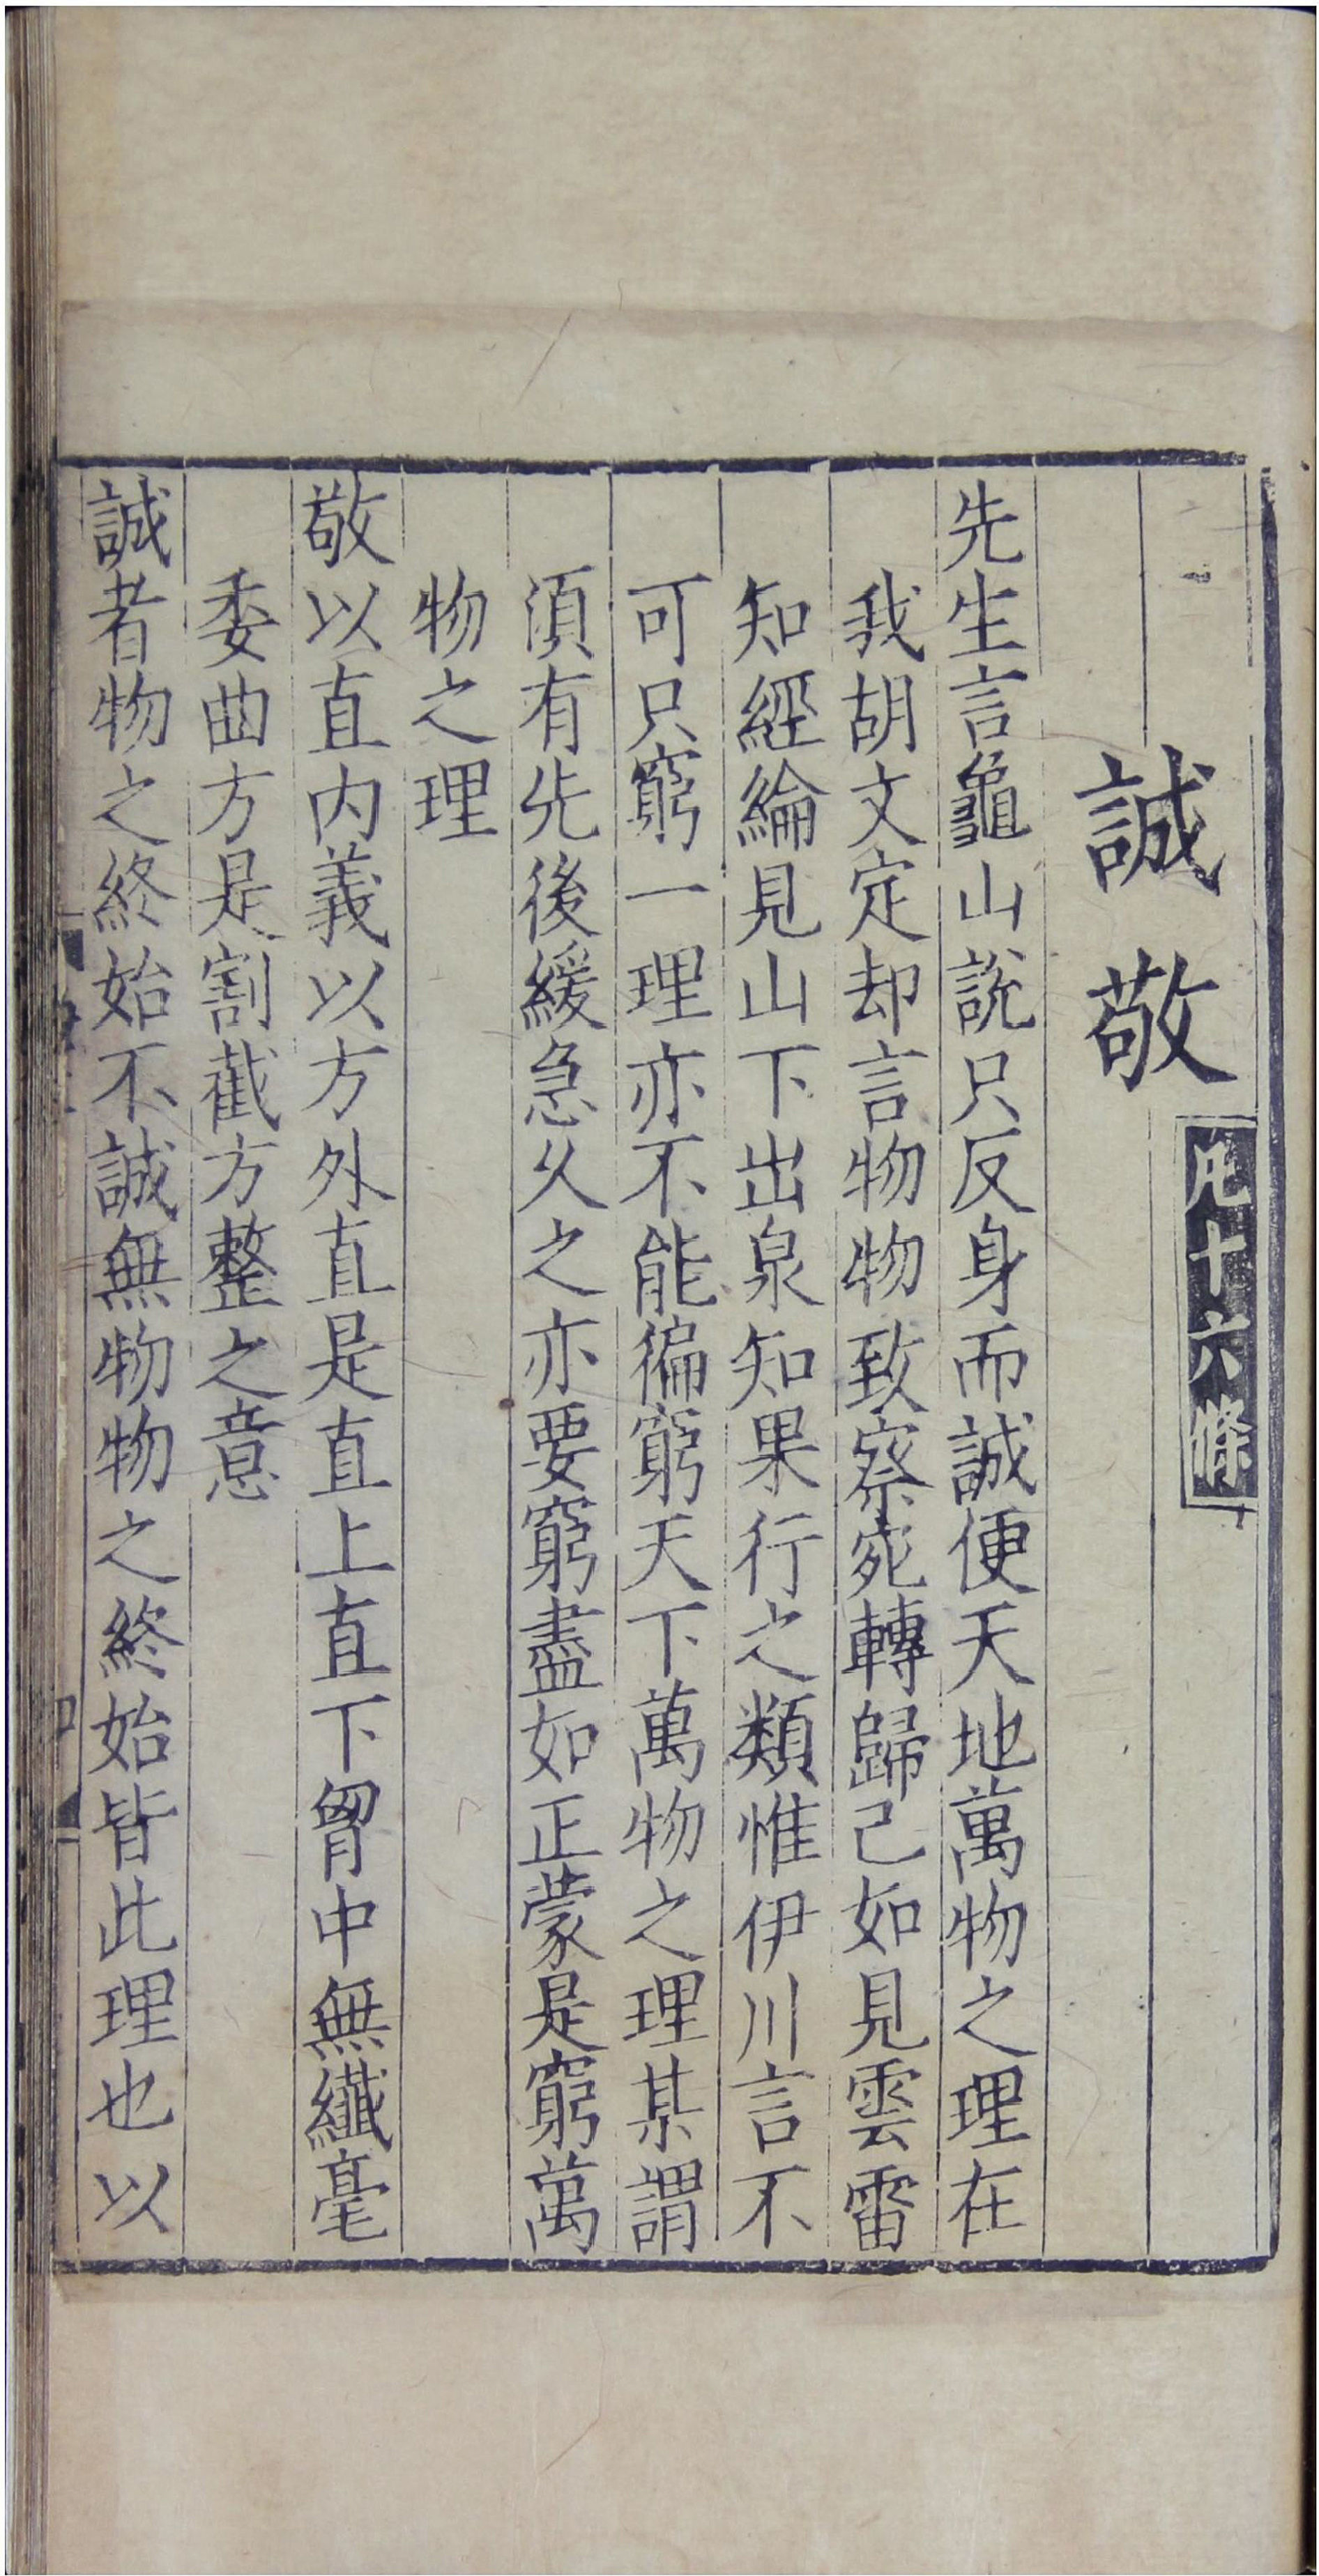 誠敬
凡十六條
先生言龜山說只反身而誠便天地萬物之理在
我胡文定却言物物致察宛轉歸己如見雲雷
知經綸見山下出泉知果行之類惟伊川言不
可只窮一理亦不能徧窮天下萬物之理某謂
須有先後緩急久之亦要窮盡如正蒙是窮萬
物之理
敬以直內義以方外直是直上直下胷中無纖毫
委曲方是割截方整之意
誠者物之終始不誠無物物之終始皆此理也以